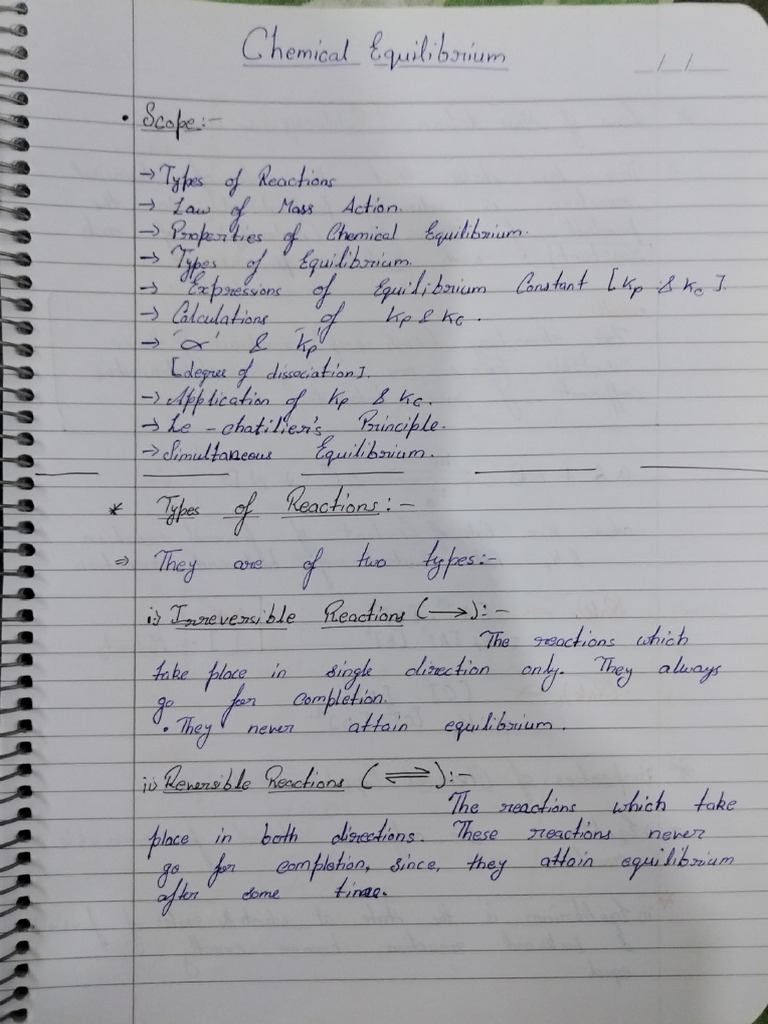 Chemical Equilibrium
_/_/_
• Scope:-
→ Types of Reactions
→ Law of Mass Action.
→ Properties of Chemical Equilibrium.
→ Types of Equilibrium.
→ Expressions of Equilibrium Constant [Kp & Kc].
→ Calculations of Kp & Kc.
→ 'α' & 'Kp'
[degree of dissociation].
→ Application of Kp & Kc.
→ Le-chatilier's Principle.
→ Simultaneous Equilibrium.
* Types of Reactions:-
⇒ They are of two types:-
i) Irreversible Reactions (→):-
The reactions which
take place in single direction only. They always
go for completion.
• They never attain equilibrium.
ii) Reversible Reactions (⇌):-
The reactions which take
place in both directions. These reactions never
go for completion, since, they attain equilibrium
after some time.